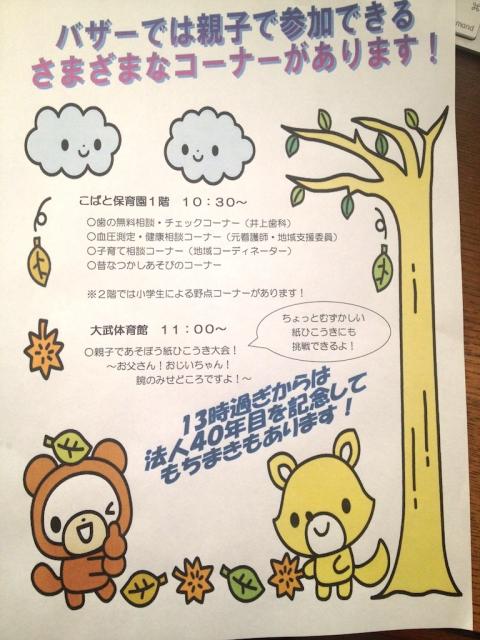 バザーでは親子で参加できる
さまざまなコーナーがあります！
こばと保育園1階　10：30～
○歯の無料相談・チェックコーナー（井上歯科）
○血圧測定・健康相談コーナー（元看護師・地域支援委員）
○子育て相談コーナー（地域コーディネーター）
○昔なつかしあそびのコーナー
※2階では小学生による野点コーナーがあります！
大武体育館　11：00～
○親子であそぼう紙ひこうき大会！
～お父さん！おじいちゃん！
腕のみせどころですよ！～
ちょっとむずかしい
紙ひこうきにも
挑戦できるよ！
13時過ぎからは
法人40年目を記念して
もちまきもあります！